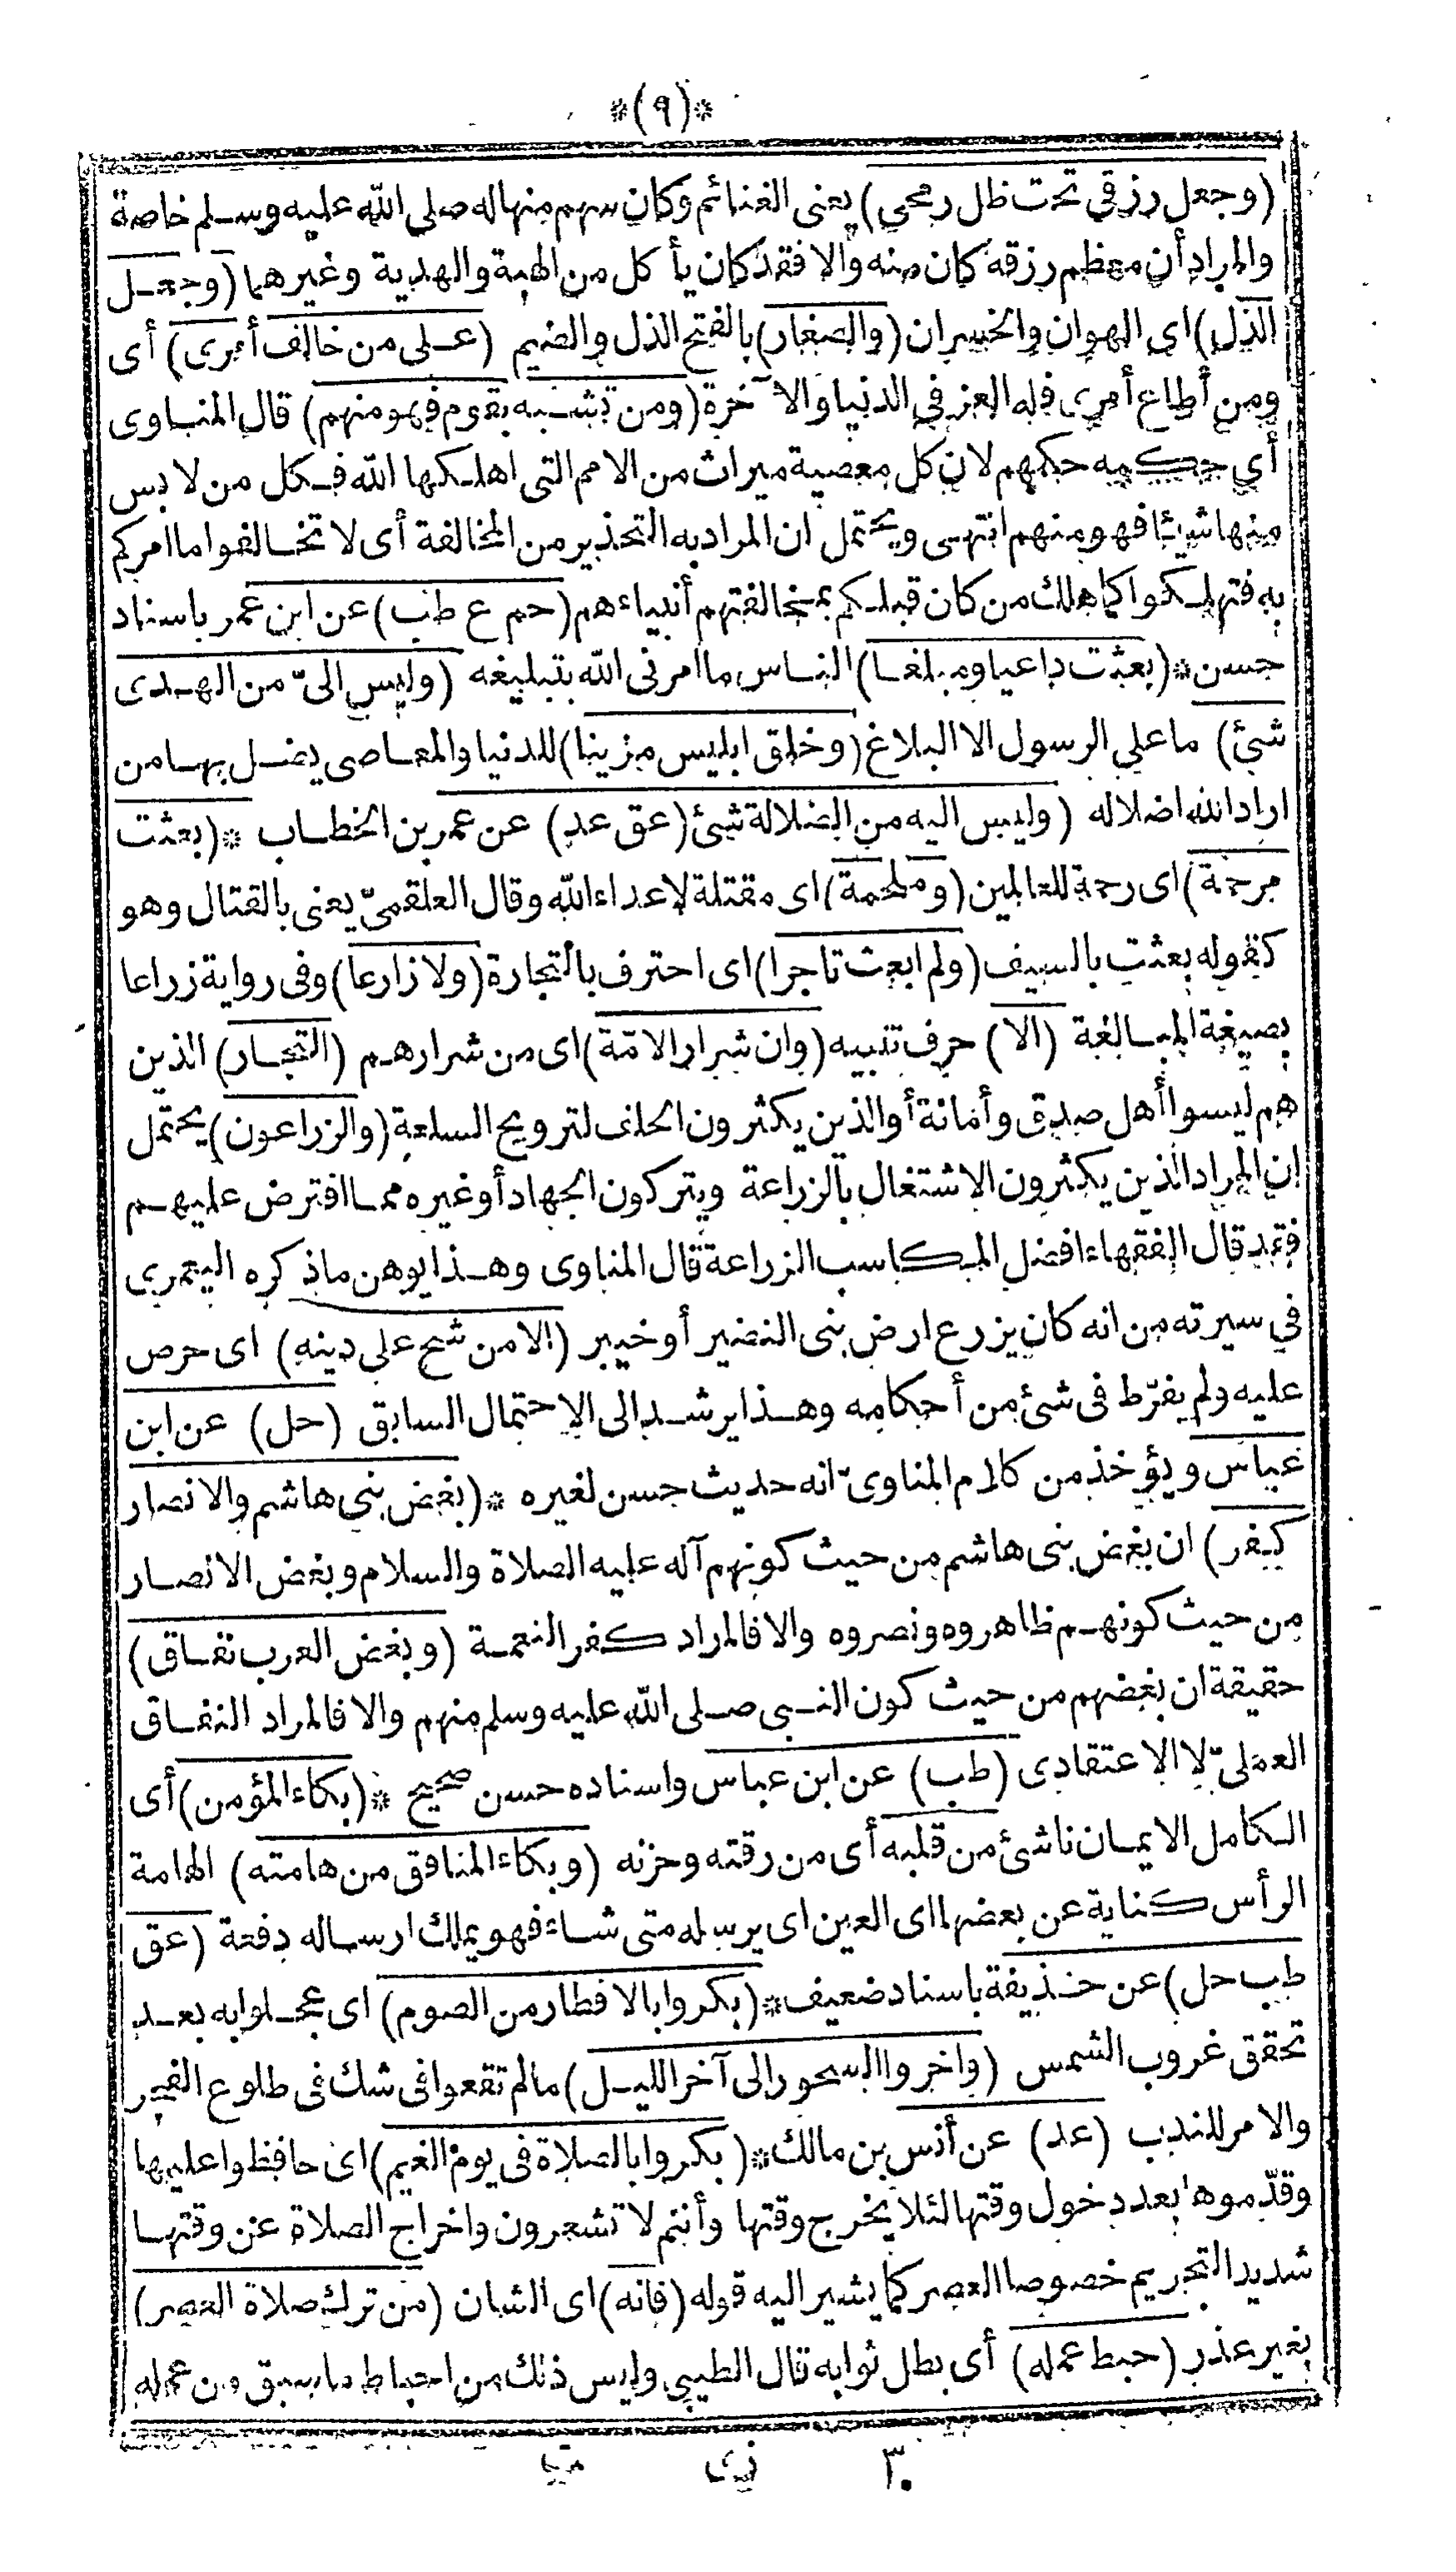 *(٩)*
(وجعل رزقي تحت ظل رمحي) يعنى الغنائم وكان سهم منها له صلى الله عليه وسلم خاصة
والمراد أن معظم رزقه كان منه والا فقد كان يأكل من الهبة والهدية وغيرهما (وجعل
الذل) اى الهوان والخسران (والصغار) بالفتح الذل والضيم (على من خالف أمرى) أى
ومن أطاع أمرى فله العز في الدنيا والآخرة (ومن تشبه بقوم فهو منهم) قال المناوى
أي حكمه حكمهم لان كل معصية ميراث من الامم التى اهلكها الله فكل من لابس
منها شيئا فهو منهم انتهى ويحتمل ان المراد به التحذير من المخالفة أى لا تخالفوا ما امركم
به فتهلكوا كما هلك من كان قبلكم بمخالفتهم أنبياءهم (حم ع طب) عن ابن عمر باسناد
حسن *(بعثت داعيا ومبلغا) الناس ما امرنى الله بتبليغه (وليس الىّ من الهدى
شئ) ما على الرسول الا البلاغ (وخلق ابليس مزينا) للدنيا والمعاصى يضل بها من
اراد الله اضلاله (وليس اليه من الضلالة شئ (عق عد) عن عمر بن الخطاب *(بعثت
مرحمة) اى رحمة للعالمين (وملحمة) اى مقتلة لاعداء الله وقال العلقمىّ يعنى بالقتال وهو
كقوله بعثت بالسيف (ولم ابعث تاجرا) اى احترف بالتجارة (ولا زارعا) وفى رواية زراعا
بصيغة المبالغة (الا) حرف تنبيه (وان شرار الامّة) اى من شرارهم (التجار) الذين
هم ليسوا أهل صدق وأمانة أو الذين يكثرون الحلف لترويج السلعة (والزراعون) يحتمل
ان المراد الذين يكثرون الاشتغال بالزراعة ويتركون الجهاد أو غيره مما افترض عليهم
فقد قال الفقهاء افضل المكاسب الزراعة قال المناوى وهذا يوهن ماذكره اليعمرى
في سيرته من انه كان يزرع ارض بنى النضير أو خيبر (الا من شح على دينه) اى حرص
عليه ولم يفرّط فى شئ من أحكامه وهذا يرشد الى الاحتمال السابق (حل) عن ابن
عباس ويؤخذ من كلام المناوىّ انه حديث حسن لغيره *(بغض بنى هاشم والانصار
كفر) ان بغض بنى هاشم من حيث كونهم آله عليه الصلاة والسلام وبغض الانصار
من حيث كونهم ظاهروه ونصروه والا فالمراد كفر النعمة (وبغض العرب نفاق)
حقيقة ان بغضهم من حيث كون النبى صلى الله عليه وسلم منهم والا فالمراد النفاق
العملىّ لا الاعتقادى (طب) عن ابن عباس واسناده حسن صحيح *(بكاء المؤمن) أى
الكامل الايمان ناشئ من قلبه أى من رقته وحزنه (وبكاء المنافق من هامته) الهامة
الرأس كناية عن بعضها اى العين اى يرسله متى شاء فهو يملك ارساله دفعة (عق
طب حل) عن حذيفة باسناد ضعيف *(بكروا بالافطار من الصوم) اى عجلوا به بعد
تحقق غروب الشمس (واخروا السحور الى آخر الليل) مالم تقعوا فى شك فى طلوع الفجر
والامر للندب (عد) عن أنس بن مالك *(بكروا بالصلاة فى يوم الغيم) اى حافظوا عليها
وقدّموها بعد دخول وقتها لئلا يخرج وقتها وأنتم لا تشعرون واخراج الصلاة عن وقتها
شديد التحريم خصوصا العصر كما يشير اليه قوله (فانه) اى الشان (من ترك صلاة العصر)
بغير عذر (حبط عمله) أى بطل ثوابه قال الطيبى وليس ذلك من احباط ما سبق من عمله
٣٠ زى